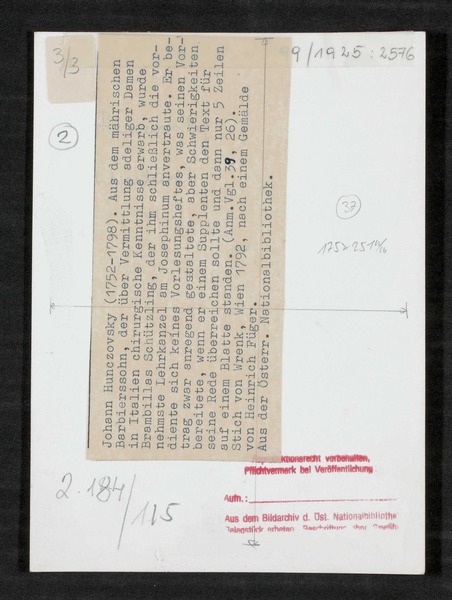 3/3
99/1925:2576
2
37
Johann Hunczovsky (1752-1798). Aus dem mährischen
Barbierssohn, der über Vermittlung adeliger Damen
in Italien chirurgische Kenntnisse erwarb, wurde
Brambillas Schützling, der ihm schließlich die vor-
nehmste Lehrkanzel am Josephinum anvertraute. Er be-
diente sich keines Vorlesungsheftes, was seinen Vor-
trag zwar anregend gestaltete, aber Schwierigkeiten
bereitete, wenn er einem Supplenten den Text für
seine Rede überreichen sollte und dann nur 5 Zeilen
auf einem Blatte standen. (Anm.Vgl.39, 26).
Stich von Wrenk, Wien 1792, nach einem Gemälde
von Heinrich Füger.
Aus der Österr. Nationalbibliothek.
2.184/115
vorbehalten,
Pflichtvermerk bei Veröffentlichung
Aufn.:
Aus dem Bildarchiv d. Öst. Nationalbibliothe